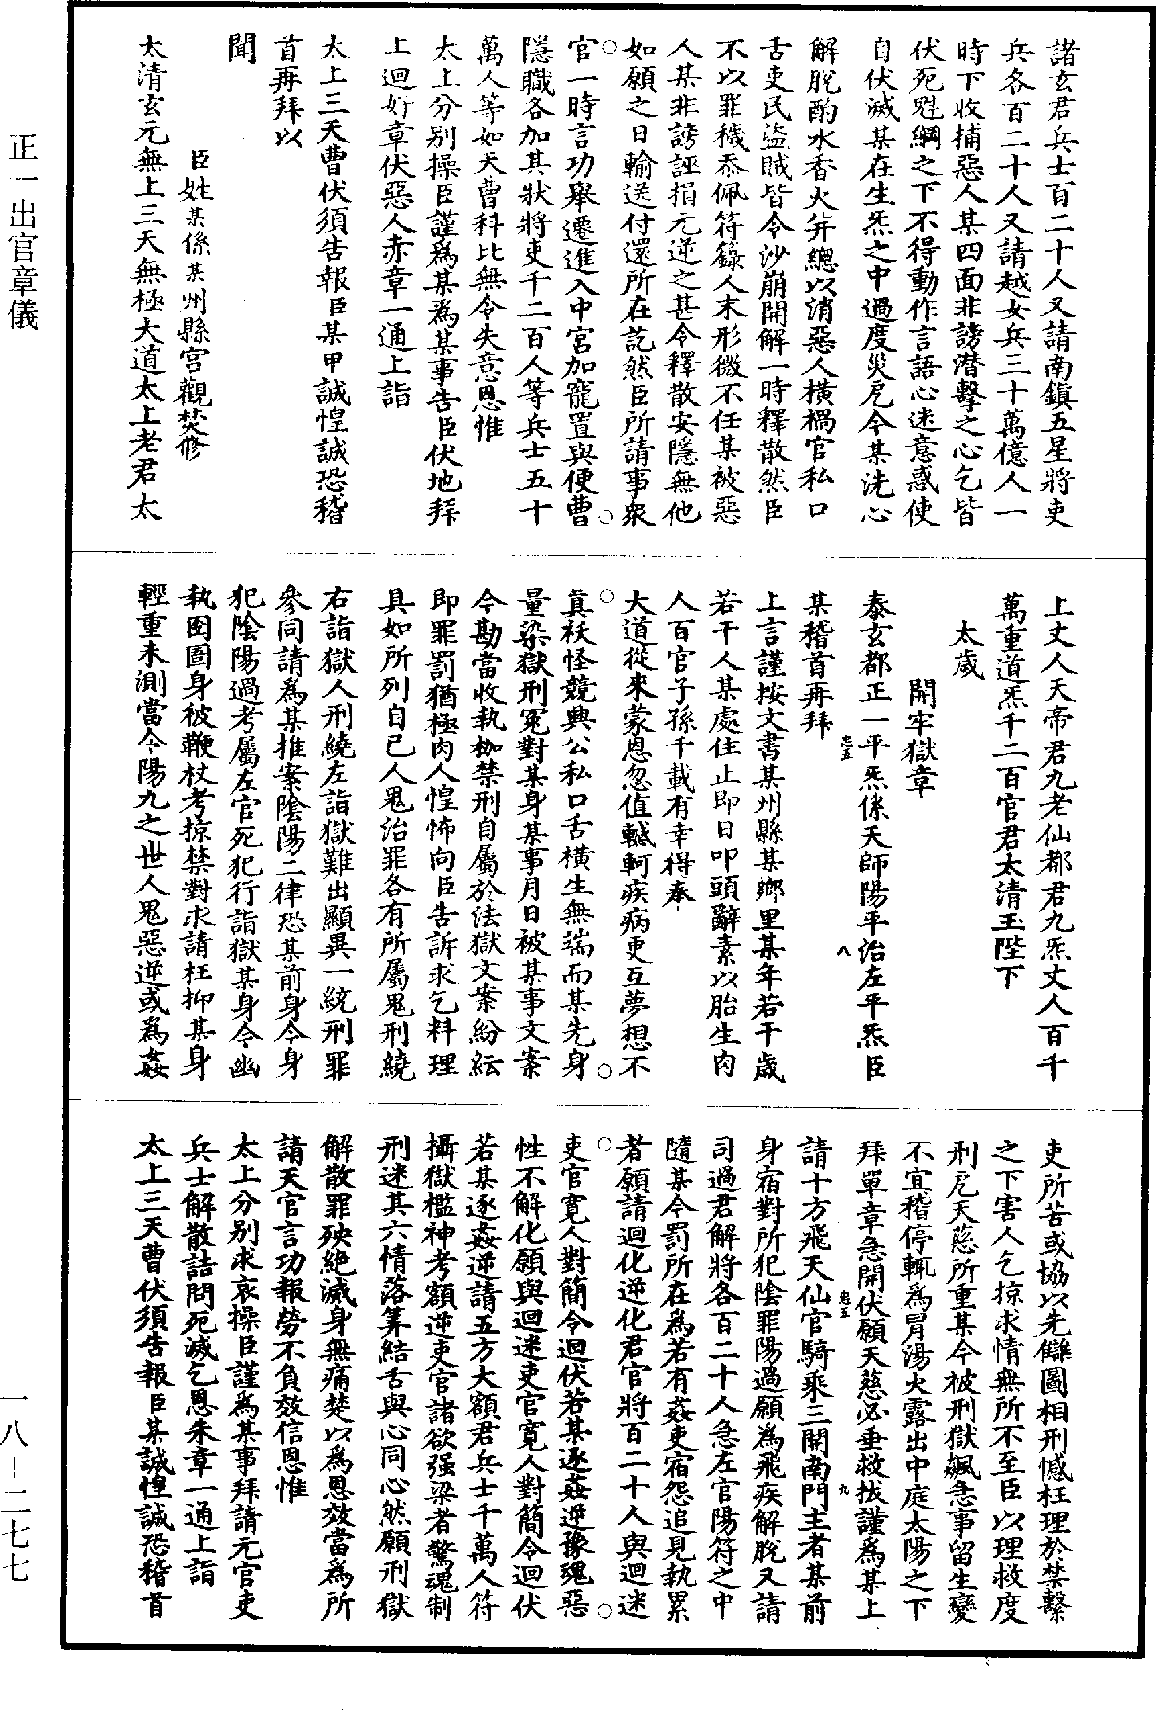 諸玄君兵士百二十人又請南鎮五星將吏
兵各百二十人又請越女兵三十萬億人一
時下收捕惡人某四面非謗潛擊之心乞皆
伏死魁綱之下不得動作言語心迷意惑使
自伏滅某在生炁之中過度災厄令某洗心
解脫酌水香火并總以消惡人橫禍官私口
舌吏民盜賊皆令沙崩開解一時釋散然臣
不以罪穢忝佩符籙人末形微不任某被惡
人某非謗誣捐元逆之甚令釋散安隱無他
如願之日輸送付還所在訖然臣所請事衆
官一時言功舉遷進入中宮加寵置與便曹
隱職各加其狀將吏千二百人等兵士五十
萬人等如天曹科比無令失意恩惟
太上分別操臣謹爲某爲某事告臣伏地拜
上迴好章伏惡人赤章一通上詣
太上三天曹伏須告報臣某甲誠惶誠恐稽
首再拜以
聞
臣姓某係某州縣宫觀焚修
太清玄元無上三天無極大道太上老君太
上丈人天帝君九老仙都君九炁丈人百千
萬重道炁千二百官君太清玉陛下
太歲
開牢獄章
泰玄都正一平炁係天師陽平治左平炁臣
某稽首再拜
上言謹按文書某州縣某鄉里某年若干歲
若干人某處住止即日叩頭辭素以胎生肉
人百官子孫千載有幸得奉
大道從來蒙恩忽值轗軻疾病更互夢想不
真秖怪競興公私口舌橫生無端而某先身
量染獄刑冤對某身某事月日被某事文案
今勘當收執枷禁刑自屬於法獄文案紛紜
即罪罰猶極肉人惶怖向臣告訴求乞料理
具如所列自已人鬼治罪各有所屬鬼刑繞
右詣獄人刑繞左詣獄難出顯異一統刑罪
參同請爲某推案陰陽二律恐某前身今身
犯陰陽過考屬左官死犯行詣獄某身今幽
執囹圄身被鞭杖考掠禁對求請枉抑某身
輕重未測當今陽九之世人鬼惡逆或爲姦
吏所苦或協以先讎圖相刑憾枉理於禁繫
之下害人乞掠求情無所不至臣以理救度
刑厄天慈所重某今被刑獄飆急事留生變
不宜稽停輒爲冐湯火露出中庭太陽之下
拜單章急開伏願天慈必垂救拔謹爲某上
請十方飛天仙官騎乘三開南門主者某前
身宿對所犯陰罪陽過願爲飛疾解脫又請
司過君解將各百二十人急左官陽符之中
隨某今罰所在爲若有姦吏宿怨追見執累
者願請迴化逆化君官將百二十人與迴迷
吏官寃人對簡令迴伏若某逐姦逆豫魂惡
性不解化願與迴迷吏官寃人對簡令迴伏
若某逐姦逆請五方大額君兵士千萬人符
攝獄檻神考額逆吏官諸欲强梁者驚魂制
刑迷其六情落筭結舌與心同心然願刑獄
解散罪殃絶滅身無痛楚以爲恩效當爲所
請天官言功報勞不負效信恩惟
太上分別求哀操臣謹爲某事拜請元官吏
兵士解散詰問死滅乞恩朱章一通上詣
太上三天曹伏須告報臣某誠惶誠恐稽首
正一出官章儀
一八—二七七